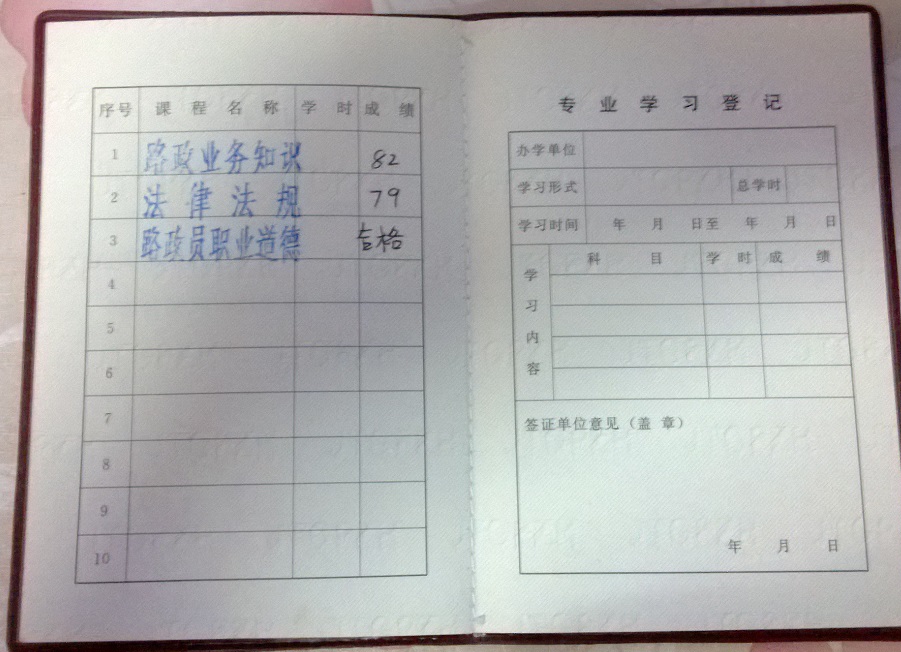 序号 课程名称 学时 成绩
1 路政业务知识 82
2 法律法规 79
3 路政员职业道德 合格
4
5
6
7
8
9
10
专业学习登记
办学单位
学习形式 总学时
学习时间 年 月 日至 年 月 日
学习内容 科目 学时 成绩
签证单位意见（盖 章）
年 月 日